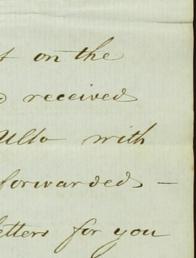 on the
received
with
forwarded —
letters for you